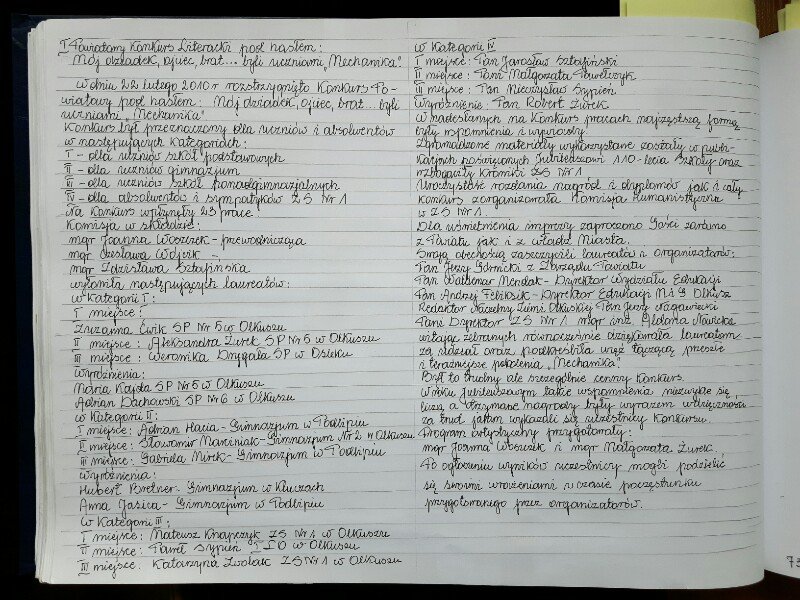 I Powiatowy Konkurs Literacki pod hasłem:
Mój dziadek, ojciec, brat... byli uczniami „Mechanika"
W dniu 22 lutego 2010 r rozstrzygnięto Konkurs Po-
wiatowy pod hasłem: Mój dziadek, ojciec, brat... byli
uczniami „Mechanika"
Konkurs był przeznaczony dla uczniów i absolwentów
w następujących kategoriach:
I - dla uczniów szkół podstawowych
II - dla uczniów gimnazjum
III - dla uczniów szkół ponadgimnazjalnych
IV - dla absolwentów i sympatyków ZS Nr 1
Na konkurs wpłynęły 23 prace.
Komisja w składzie:
mgr Joanna Woszczek - przewodnicząca
mgr Czesława Wójcik -
mgr Zdzisława Sztafińska
wyłoniła następujących laureatów:
w Kategorii I:
I miejsce:
Zuzanna Ćwik SP Nr 5 w Olkuszu
II miejsce: Aleksandra Żurek SP Nr 5 w Olkuszu
III miejsce: Weronika Drygała SP w Osieku
Wyróżnienia:
Maria Kajda SP Nr 5 w Olkuszu
Adrian Dachowski SP Nr 6 w Olkuszu
w Kategorii II:
I miejsce: Adrian Hacia - Gimnazjum w Podlipiu
II miejsce: Sławomir Marciniak - Gimnazjum Nr 2 w Olkuszu
III miejsce: Gabriela Mirek - Gimnazjum w Podlipiu
Wyróżnienia:
Hubert Bretner - Gimnazjum w Kluczach
Anna Jasica - Gimnazjum w Podlipiu
w Kategorii III:
I miejsce: Mateusz Knapczyk ZS Nr 1 w Olkuszu
II miejsce: Paweł Sypień I LO w Olkuszu
III miejsce: Katarzyna Zwolak ZS Nr 1 w Olkuszu
w Kategorii IV
I miejsce: Pan Jarosław Sztafiński
II miejsce: Pani Małgorzata Pawełczyk
III miejsce: Pan Mieczysław Sypień
Wyróżnienie: Pan Robert Żurek
W nadesłanych na Konkurs pracach najczęstszą formą
były wspomnienia i wywiady.
Zgromadzone materiały wykorzystane zostały w publi-
kacjach poświęconych Jubileuszowi 110-lecia Szkoły oraz
wzbogaciły Kroniki ZS Nr 1
Uroczystość rozdania nagród i dyplomów jak i cały
konkurs zorganizowała Komisja Humanistyczna
w ZS Nr 1.
Dla uświetnienia imprezy zaproszono Gości zarówno
z Powiatu jak i z władz Miasta.
Swoją obecnością zaszczycili laureatów i organizatorów:
Pan Jerzy Górnicki z Zarządu Powiatu
Pan Waldemar Mendak - Dyrektor Wydziału Edukacji
Pan Andrzej Feliksik - Dyrektor Edukacji M i G Olkusz
Redaktor Naczelny Ziemi Olkuskiej Pan Jerzy Nagawiecki
Pani Dyrektor ZS Nr 1 mgr inż. Aldona Nowicka
witając zebranych równocześnie dziękowała laureatom
za udział oraz podkreśliła więź łączącą przeszłe
i teraźniejsze pokolenia „Mechanika".
Był to trudny ale szczególnie cenny konkurs.
W roku jubileuszowym takie wspomnienia niezwykle się
liczą a otrzymane nagrody były wyrazem wdzięczności
za trud jakim wykazali się uczestnicy Konkursu.
Program artystyczny przygotowały:
mgr Joanna Woszczek i mgr Małgorzata Żurek.
Po ogłoszeniu wyników uczestnicy mogli podzielić
się swoimi wrażeniami w czasie poczęstunku
przygotowanego przez organizatorów.
73